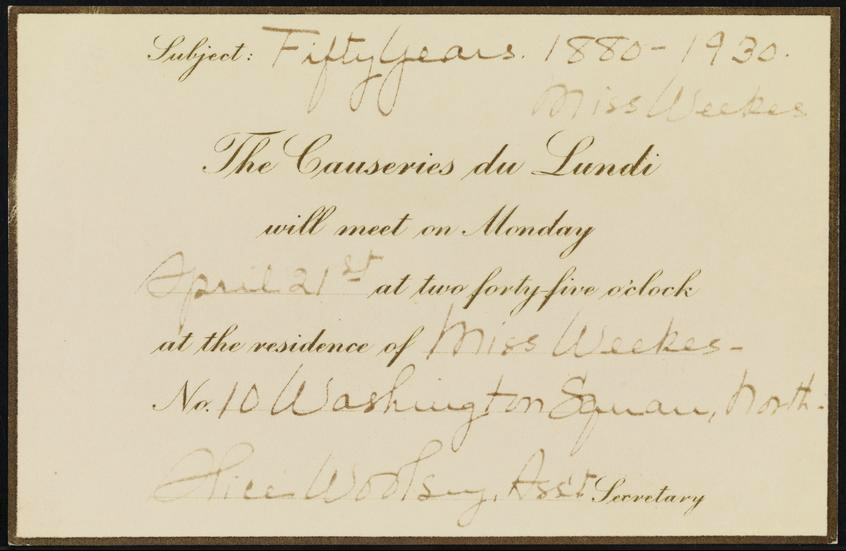 Subject: Fifty Years. 1880-1930.
Miss Weekes
The Causeries du Lundi
will meet on Monday
April 21st at two forty-five o'clock
at the residence of Miss Weekes-
No. 10 Washington Square, North.
Alice Woolsey, Ass't Secretary